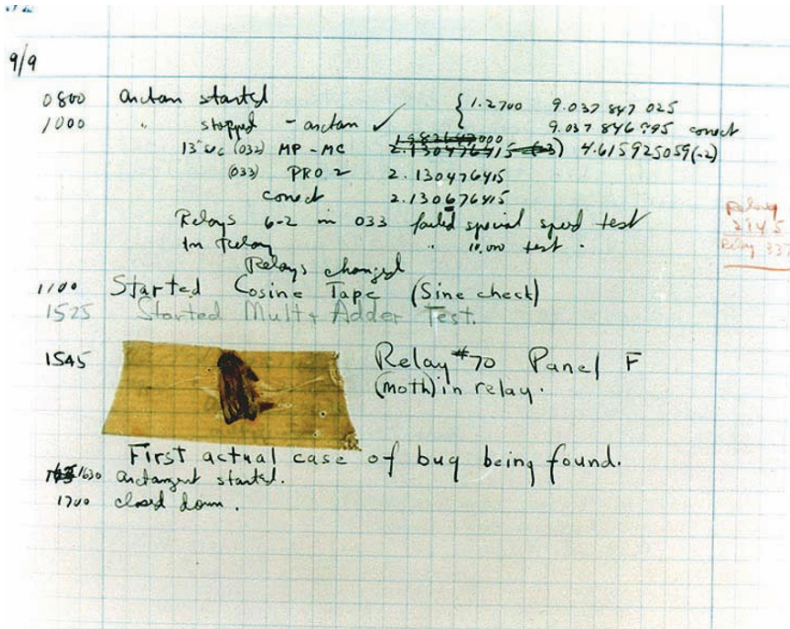 9/9
0800 antan started { 1.2700 9.037 847 025
1000 " stopped - antan ✓ 9.037 846 995 correct
13"uc (032) MP - MC 2.130476415 (-3) 4.615925059(-2)
(033) PRO 2 2.130476415
correct 2.130676415
Relays 6-2 in 033 failed special speed test
In relay " 10,000 test .
Relay
2145
Relay 337
Relays changed
1100 Started Cosine Tape (Sine check)
1525 Started Mult + Adder Test.
1545 Relay #70 Panel F
(moth) in relay.
First actual case of bug being found.
1630 antangent started.
1700 closed down .